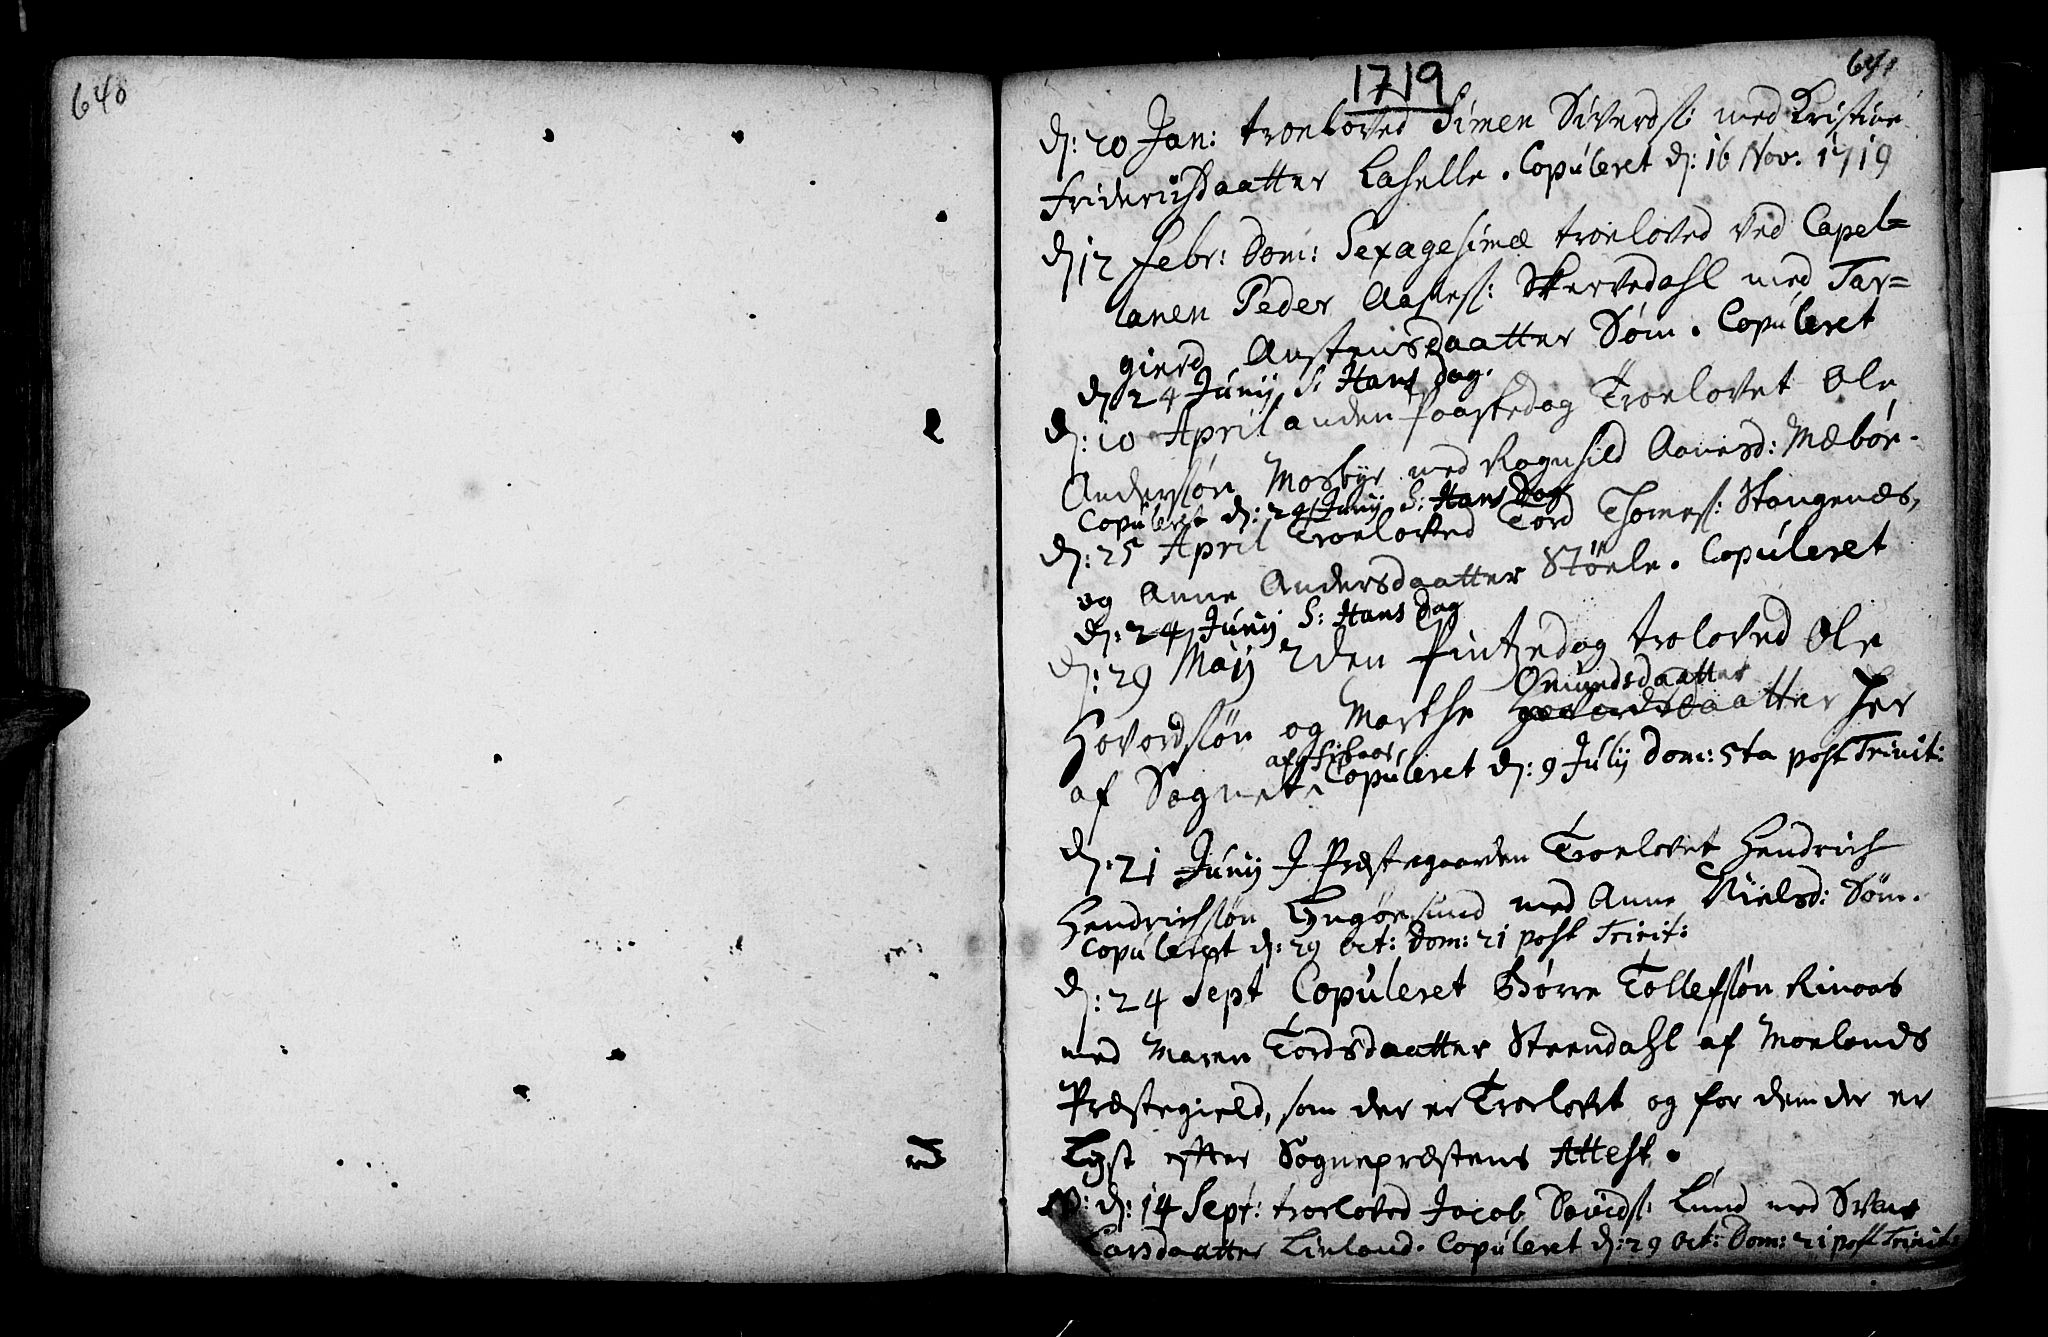 640
641
1719
d: 20 Jan: troeloved Simen Siverds: med Kristine
Friderichsdaatter Laselle. Copuleret d: 16 Nov. 1719
d 12 Febr: Dom: Sexagesimæ troeloved ved Capel=
lanen Peder Aanes: Skervedahl med Tar=
gierd Anstensdaatter Søm. Copuleret
d 24 Junij S: Hans Dag.
d: 10 April anden Paaskedag Troelovet Ole
Andersøn Mosbye med Ragnhild Aanesd: Mæbøe.
Copuleret d: 24 Junij S: Hans Dag
d: 25 April Troeloved Tord Thomes: Stangenæs,
og Anne Andersdaatter Støele. Copuleret
d: 24 Junij S: Hans Dag
d: 29 Maij 2den Pintzedag troloved Ole
Omundsdaatter
Hovordsøn og Marthe daatter her
af Sognet. Copuleret d: 9 Julij Dom: 5ta post Trinit:
d: 21 Junij J Præstegaarden Troelovet Hendrich
Hendrichsøn Lyngøesund med Anne Nielsd: Søm.
Copuleret d: 29 Oct: Dom: 21 post Trinit:
d: 24 Sept Copuleret Børre Tollefsøn Rinaas
med Maren Tordsdaatter Steendahl af Moelands
Præstegield, som der er Troelovet og for dem der er
Lyst efter Sognepræstens Attest.
NB: d: 14 Sept: troeloved Jacob Davids: Lund med
Larsdaatter Lieland. Copuleret d: 29 Oct: Dom: 21 post Trinit: